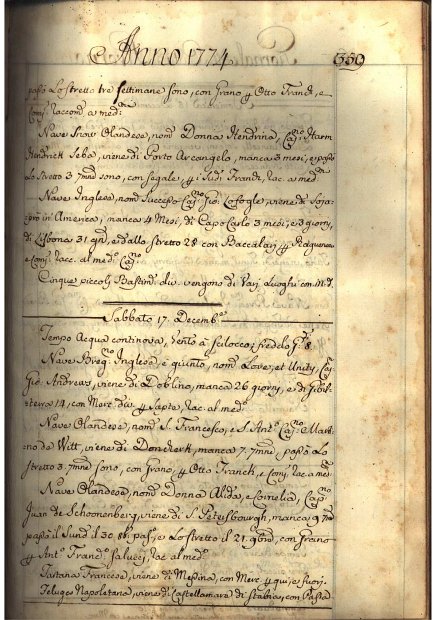 Anno 1774 350
passò Lo stretto tre settimane sono, con Grano p Otto Franck, e
Comp. raccom. a med.mo
Nave Olandese, nom.a Donna Hendrina, Cap.no Harm
Hendrick Seba, viene di Porto Arcangelo, manca 3 mesi, e passò
Lo stretto 3 7mne sono, con segale, p i Sud.i Franck, rac. a med.mo
Nave Inglese, nom.a Success Cap.no Gio: Cofogle, viene di
in America, manca 4 Mesi, di Capo Carlo 3 mesi, e 3 giorni,
di Lisbona 31 gni, e dallo stretto 28 con Baccalari p Ragueneau
e Comp. rac. al med.o Cap.no
Cinque piccoli Bastim.ti div. vengono di Varj Luoghi con M. d.
Sabbato 17. Decemb.e
Tempo Acqua continova, Vento a scilocco, freddo G.i 8.
Nave Breg.no Inglese, e quinto, nom.a Love, et Unity, Cap
Gio: Andrews, viene di Doblino, manca 26 giorni, e di Gibil-
terra 14, con Merc. div. p rac. al med.o
Nave Olandese, nom.a S. Francesco, e S. Ant.o Cap.no Mart
no de Witt, viene di Donckerk, manca 7. 7mne passò Lo
stretto 3. 7mne sono, con Grano, p Otto Franck, e Comp. rac. a med.
Nave Olandese, nom.a Donna Alida, e Cornelia, Cap.no
Juan de Schoonenberg, viene di S. Petersbourgh, manca 9 7ne
passò il Sund il 30 8b. pas.o, e Lo stretto il 21. 9bre, con Grano
p Ant.o Franc.o Salucci, rac. al med.o
Tartana Francese, viene di Messina, con Merc. p qui, e fuori.
Feluga Napoletana, viene di Castellamare di Stabia, con Pasta